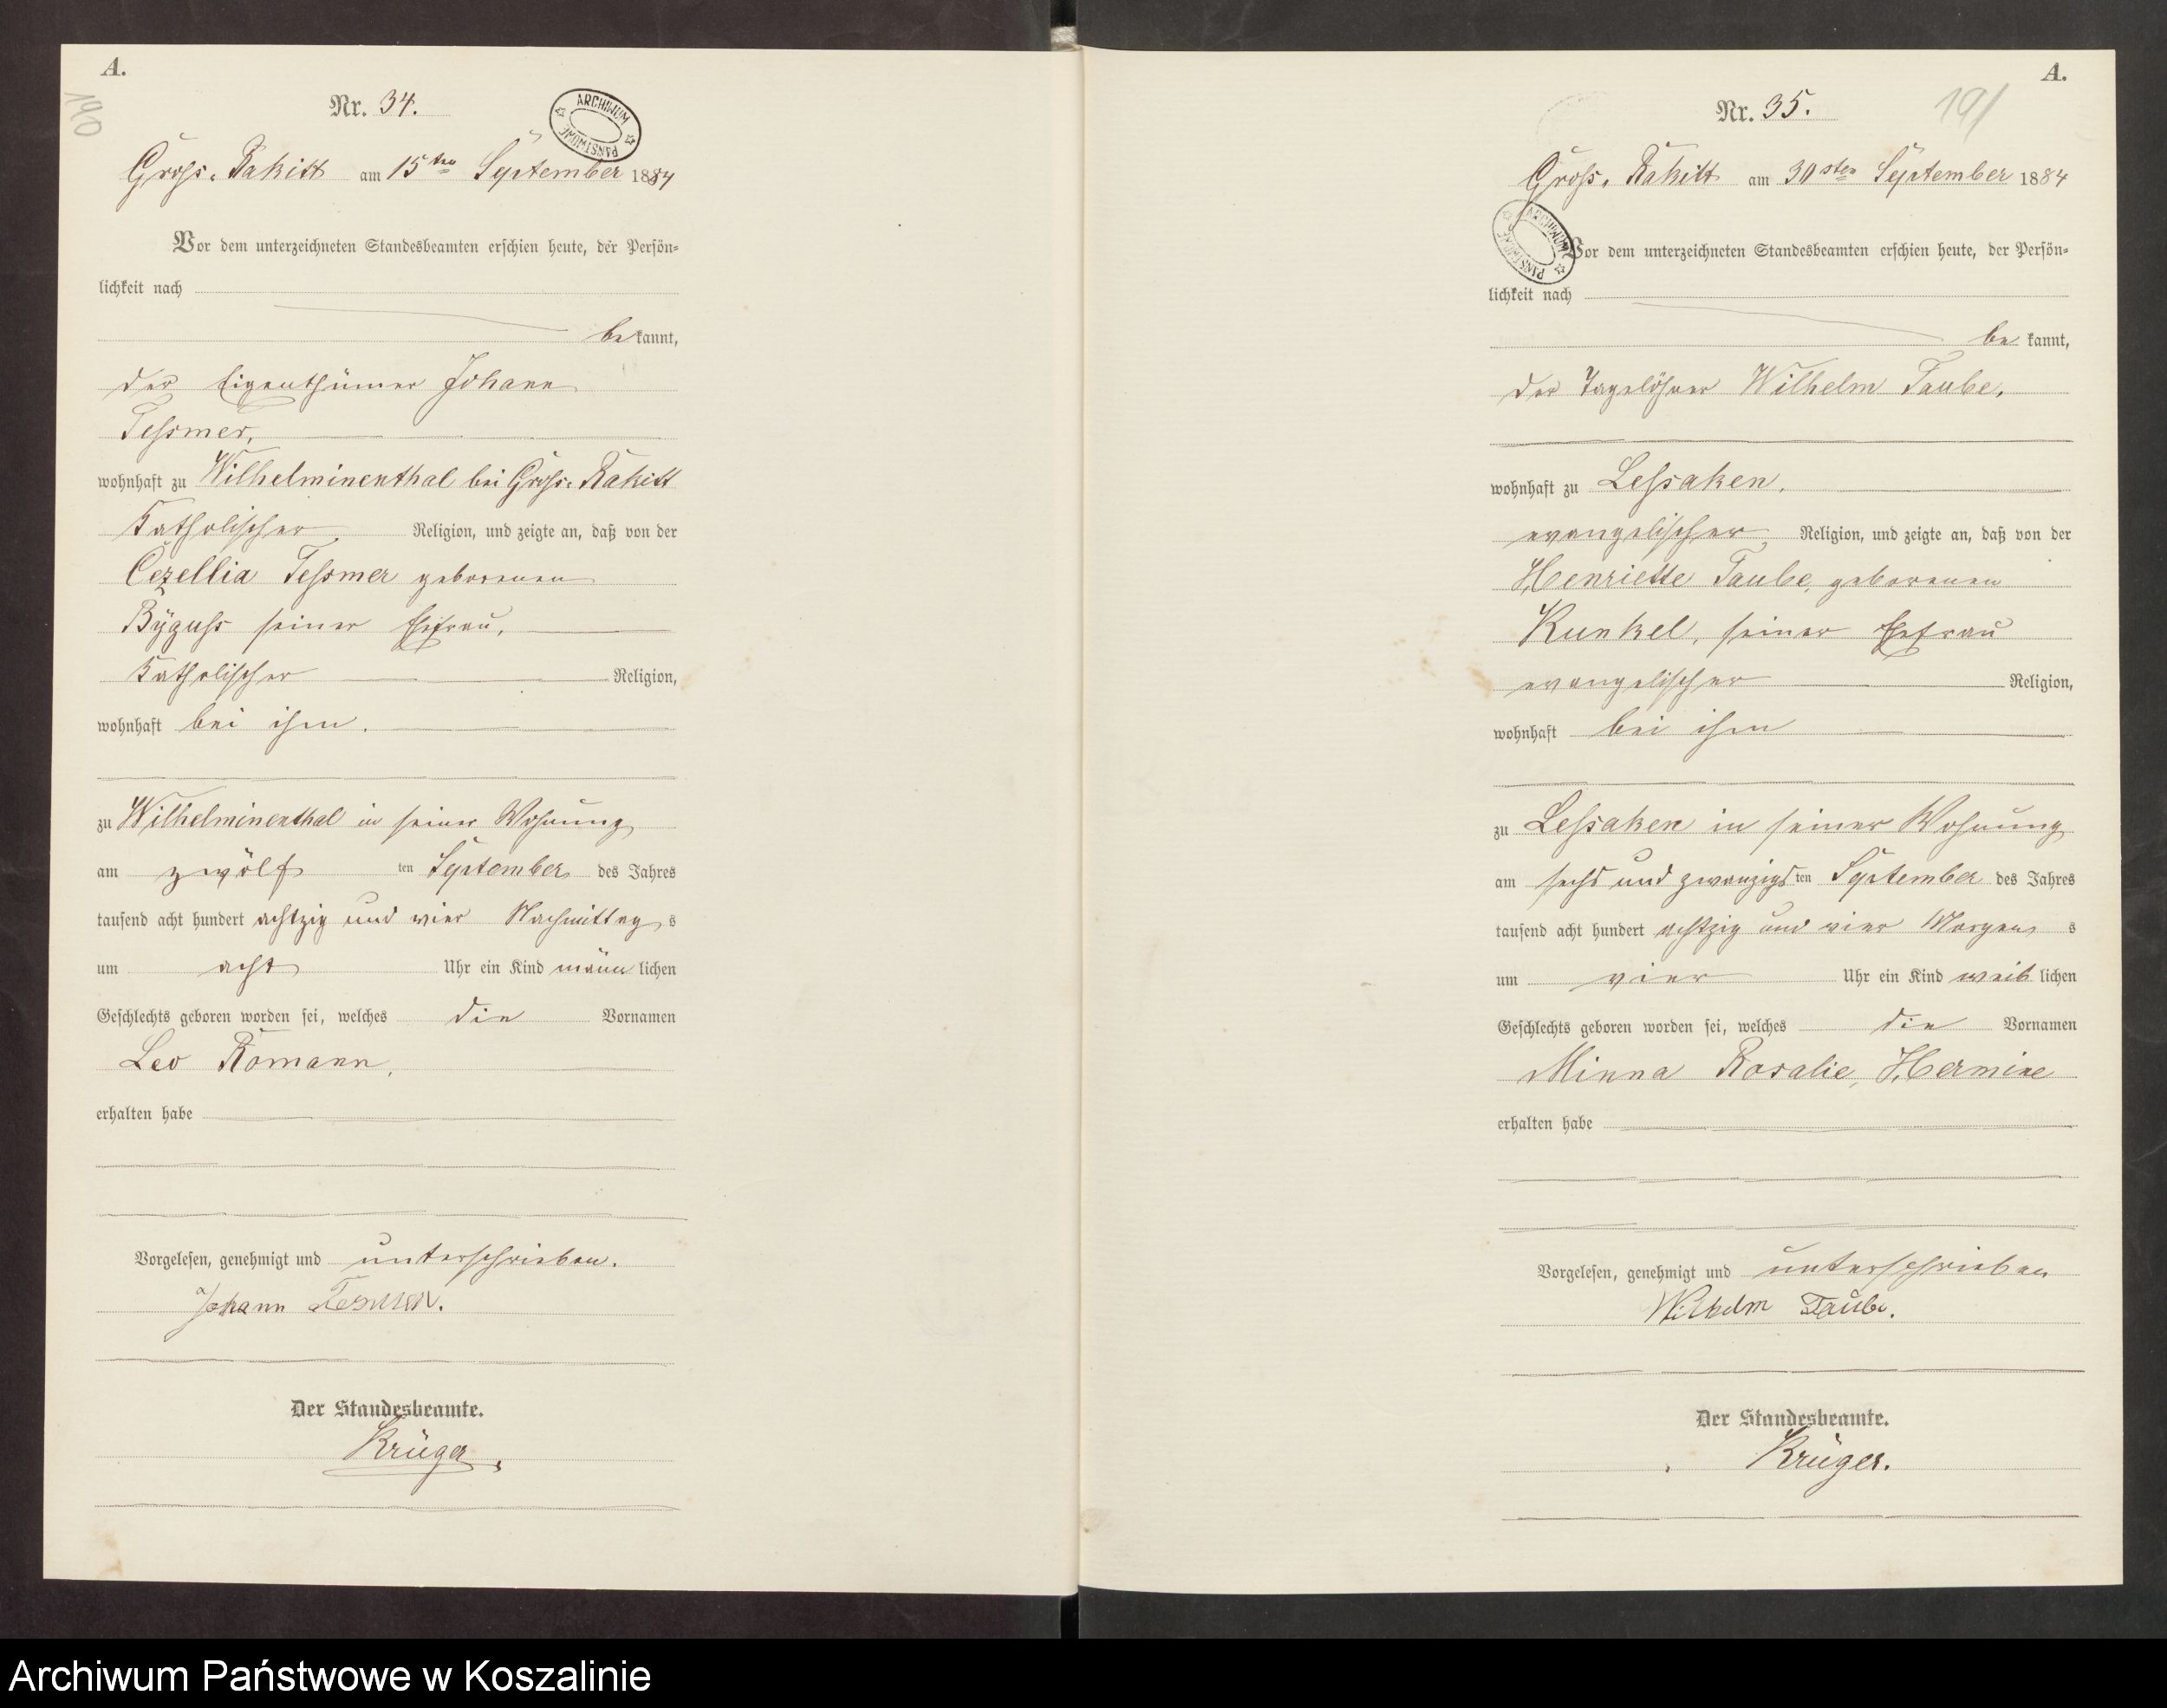 A.
190
Nr. 34.
ARCHIWUM PAŃSTWOWE
Gross-Rakitt am 15ten September 1884
Vor dem unterzeichneten Standesbeamten erschien heute, der Persön-
lichkeit nach
bekannt,
der Eigenthümer Johann
Tessmer,
wohnhaft zu Wilhelminenthal bei Gross-Rakitt
Katholischer Religion, und zeigte an, daß von der
Cezellia Tessmer geborenen
Byguss seiner Ehefrau,
Katholischer Religion,
wohnhaft bei ihm.
zu Wilhelminenthal in seiner Wohnung
am zwölf ten September des Jahres
tausend acht hundert achtzig und vier Nachmittag s
um acht Uhr ein Kind männlichen
Geschlechts geboren worden sei, welches die Vornamen
Leo Romann,
erhalten habe
Vorgelesen, genehmigt und unterschrieben.
Johann Tesmer.
Der Standesbeamte.
Krüger
A.
191
Nr. 35.
Gross-Rakitt am 30sten September 1884
ARCHIWUM PAŃSTWOWE
Vor dem unterzeichneten Standesbeamten erschien heute, der Persön-
lichkeit nach
bekannt,
der Tagelöhner Wilhelm Taube,
wohnhaft zu Lessaken,
evangelischer Religion, und zeigte an, daß von der
Henriette Taube, geborenen
Kunkel, seiner Ehefrau
evangelischer Religion,
wohnhaft bei ihm
zu Lessaken in seiner Wohnung
am sechs und zwanzigsten September des Jahres
tausend acht hundert achtzig und vier Morgen s
um vier Uhr ein Kind weiblichen
Geschlechts geboren worden sei, welches die Vornamen
Minna Rosalie, Hermine
erhalten habe
Vorgelesen, genehmigt und unterschrieben
Wilhelm Taube.
Der Standesbeamte.
Krüger.
Archiwum Państwowe w Koszalinie